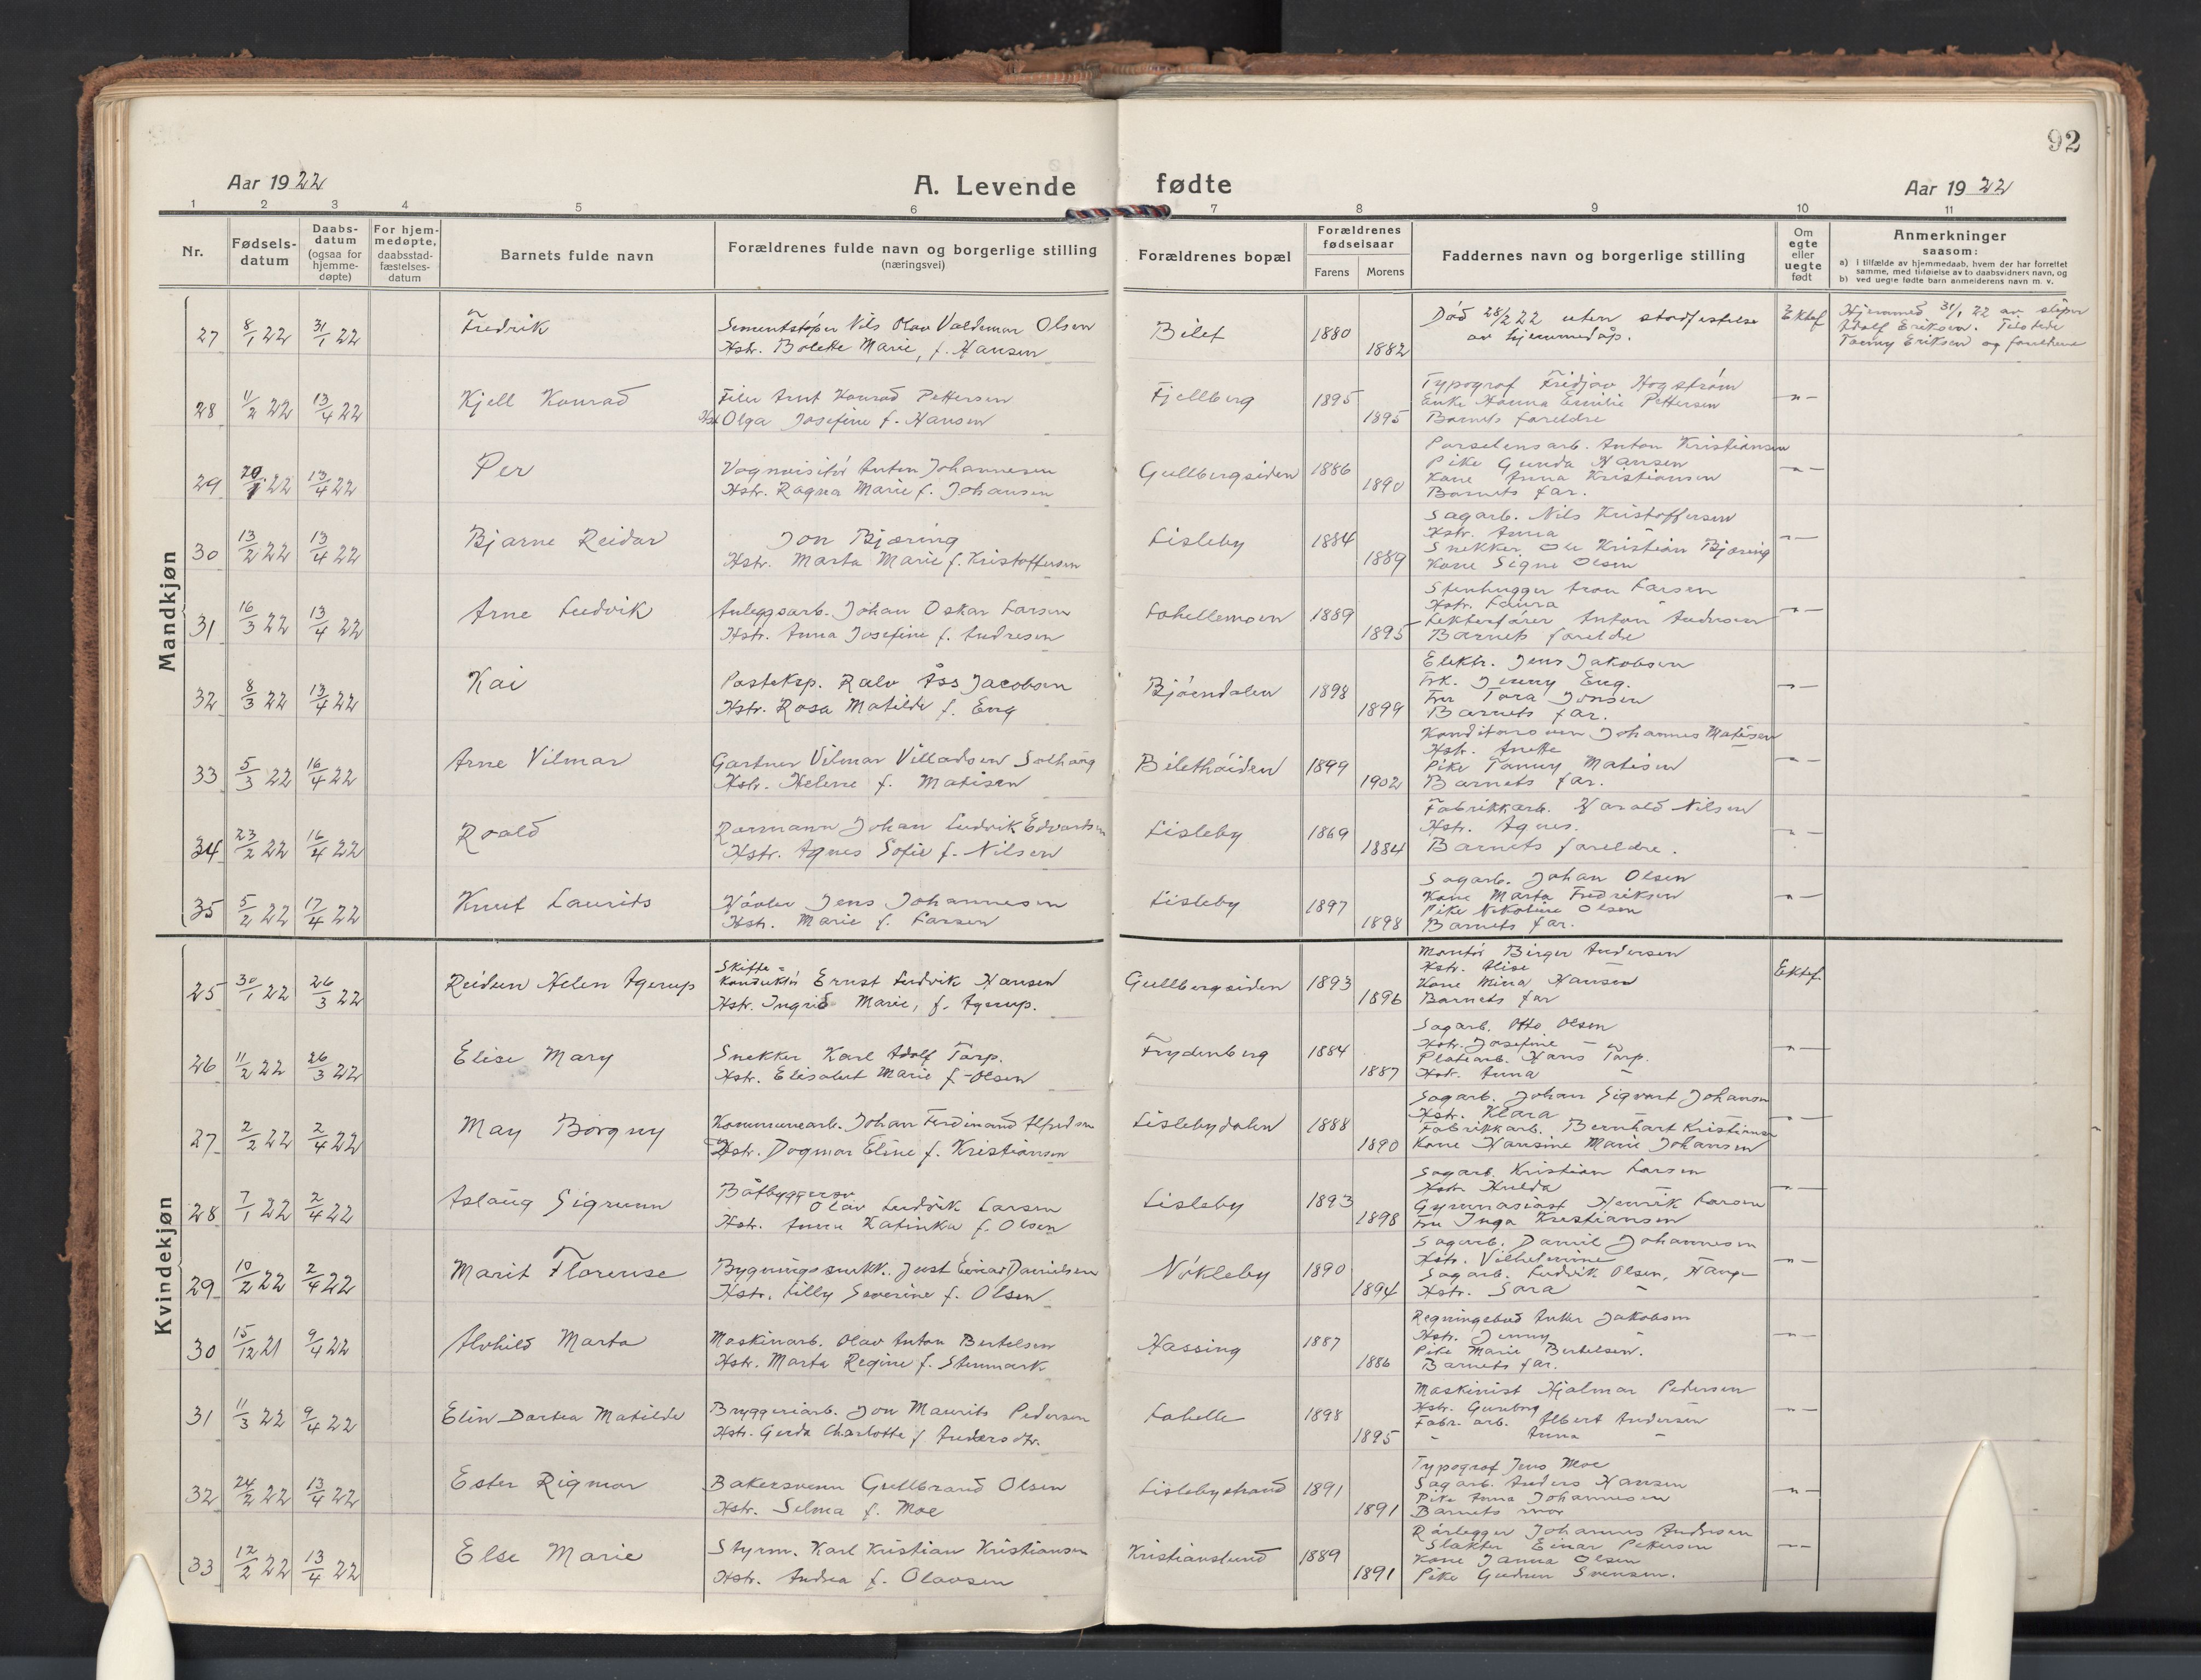 92
Aar 1922
A. Levende fødte
Aar 1922
1 2 3 4 5 6 7 8 9 10 11
Nr.
Fødsels-
datum
Daabs-
datum
(ogsaa for
hjemme-
døpte)
For hjem-
medøpte,
daabsstad-
fæstelses-
datum
Barnets fulde navn
Forældrenes fulde navn og borgerlige stilling
(næringsvei)
Forældrenes bopæl
Forældrenes
fødselsaar
Farens Morens
Faddernes navn og borgerlige stilling
Om
egte
eller
uegte
født
Anmerkninger
saasom:
a) i tilfælde av hjemmedaab, hvem der har forrettet
samme, med tilføielse av to daabsvidners navn, og
b) ved uegte fødte barn anmelderens navn m. v.
Mandkjøn
27 8/1 22 31/1 22 Fredrik
Sementstøper Nils Olav Valdemar Olsen
Hstr. Bolette Marie, f. Hansen
Bilet 1880 1882
Død 28/2 22 uten stadfestelse
av hjemmedåp.
Ektef
Hjemmed. 31/1 22 av støper
Adolf Eriksen. Tilstede
Fanny Eriksen og foreldrene
28 11/2 22 13/4 22 Kjell Konrad
Filer Arnt Konrad Pettersen
Hst. Olga Josefine f. Hansen
Fjellberg 1895 1895
Typograf Fridjov Hogstrøm
Enke Hanna Emilie Pettersen
Barnets foreldre
-"-
29 20/1 22 13/4 22 Per
Vognvisitør Anton Johannesen
Hstr. Ragna Marie f. Johansen
Gullbergsiden 1886 1890
Porselensarb. Anton Kristiansen
Pike Gunda Hansen
Kone Anna Kristiansen
Barnets far.
-"-
30 13/2 22 13/4 22 Bjarne Reidar
Jon Bjæring
Hstr. Marta Marie f. Kristoffersen
Lisleby 1884 1889
Sagarb. Nils Kristoffersen
Hstr. Anna
Snekker Ole Kristian Bjæring
Kone Signe Olsen
-"-
31 16/3 22 13/4 22 Arne Ludvik
Anleggsarb. Johan Oskar Larsen
Hstr. Anna Josefine f. Andresen
Lahellemoen 1889 1895
Stenhugger Larsen
Hstr. Laura "
Lekterfører Anton Andersen
Barnets foreldre
-"-
32 8/3 22 13/4 22 Kai
Posteksp. Ralv Åss Jacobsen
Hstr. Rosa Matilde f. Eng
Bjørndalen 1898 1899
Elektr. Jens Jakobsen
Frk. Jenny Eng.
Fru Tora Jonsen
Barnets far.
-"-
33 5/3 22 16/4 22 Arne Vilmar
Gartner Vilmar Villadsen Solhaug
Hstr. Helene f. Matisen
Bilethøiden 1899 1902
Konditorsven Johannes Matisen
Hstr. Anette
Pike Fanny Matisen
Barnets far.
-"-
34 23/2 22 16/4 22 Roald
Rormann Johan Ludvik Edvardsen
Hstr. Agnes Sofie f. Nilsen
Lisleby 1869 1884
Fabrikkarb. Harald Nilsen
Hstr. Agnes.
Barnets foreldre.
-"-
35 5/2 22 17/4 22 Knut Laurits
Høvler Jens Johannesen
Hstr. Marie f. Larsen
Lisleby 1897 1898
Sagarb. Johan Olsen
Kone Marta Fredriksen
Pike Nikoline Olsen
Barnets far.
-"-
Kvindekjøn
25 30/1 22 26/3 22 Reidun Helen Agerup
Skifte-
konduktør Ernst Ludvik Hansen
Hstr. Ingrid Marie, f. Agerup.
Gullbergsiden 1893 1896
Montør Birger Andersen
Hstr. Alise
Kone Mina Hansen
Barnets far
Ektef.
26 11/2 22 26/3 22 Elise Mary
Snekker Karl Adolf Torp.
Hstr. Elisabet Marie f. Olsen
Frydenberg 1884 1887
Sagarb. Otto Olsen
Hstr. Josefine -"-
Platearb. Hans Torp.
Hstr. Anna -
-"-
27 2/2 22 2/4 22 May Borgny
Kommunearb. Johan Ferdinand Alfredsen
Hstr. Dagmar Eline f. Kristiansen
Lislebydalen 1888 1890
Sagarb. Johan Sigvart Johansen
Hstr. Klara
Fabrikkarb. Bernhart Kristiansen
Kone Hansine Marie Johansen
-"-
28 7/1 22 2/4 22 Aslaug Sigrunn
Båtbyggersv.
Olav Ludvik Larsen
Hstr. Anna Katinka f. Olsen
Lisleby 1893 1898
Sagarb. Kristian Larsen
Hstr. Hulda
Gymnasiast Henrik Larsen
Fru Inga Kristiansen
-"-
29 10/2 22 2/4 22 Marit Florense
Bygningssnekk. Just Einar Danielsen
Hstr. Lilly Severine f. Olsen
Nøkleby 1890 1894
Sagarb. Daniel Johannesen
Hstr. Vilhelmine
Sagarb. Ludvik Olsen, Hauge
Hstr. Sara -
-"-
30 15/12 21 9/4 22 Alvhild Marta
Maskinarb. Olav Anton Bertelsen
Hstr. Marta Regine f. Stenmark
Hassing 1887 1886
Regningsbud Anker Jakobsen
Hstr. Jenny "
Pike Marie Bertelsen.
Barnets far.
-"-
31 11/3 22 9/4 22 Elin Dortea Matilde
Bryggeriarb. Jon Maurits Pedersen
Hstr. Gerda Charlotte f. Andersdtr.
Lahelle 1898 1895
Maskinist Hjalmar Pedersen
Hstr. Gunborg
Fabr.arb. Albert Andersen
- Anna -
-"-
32 24/2 22 13/4 22 Ester Rigmor
Bakersvenn Gullbrand Olsen
Hstr. Selma f. Moe
Lislebystrand 1891 1891
Typograf Jens Moe
Sagarb. Anders Hansen
Pike Anna Johannesen
Barnets mor
-"-
33 12/2 22 13/4 22 Else Marie
Styrm. Karl Kristian Kristiansen
Hstr. Andrea f. Olavsen
Kristianslund 1889 1891
Rørlegger Johannes Andresen
Slakter Einar Pettersen
Kone Janna Olsen
Pike Gudrun Svensen.
-"-